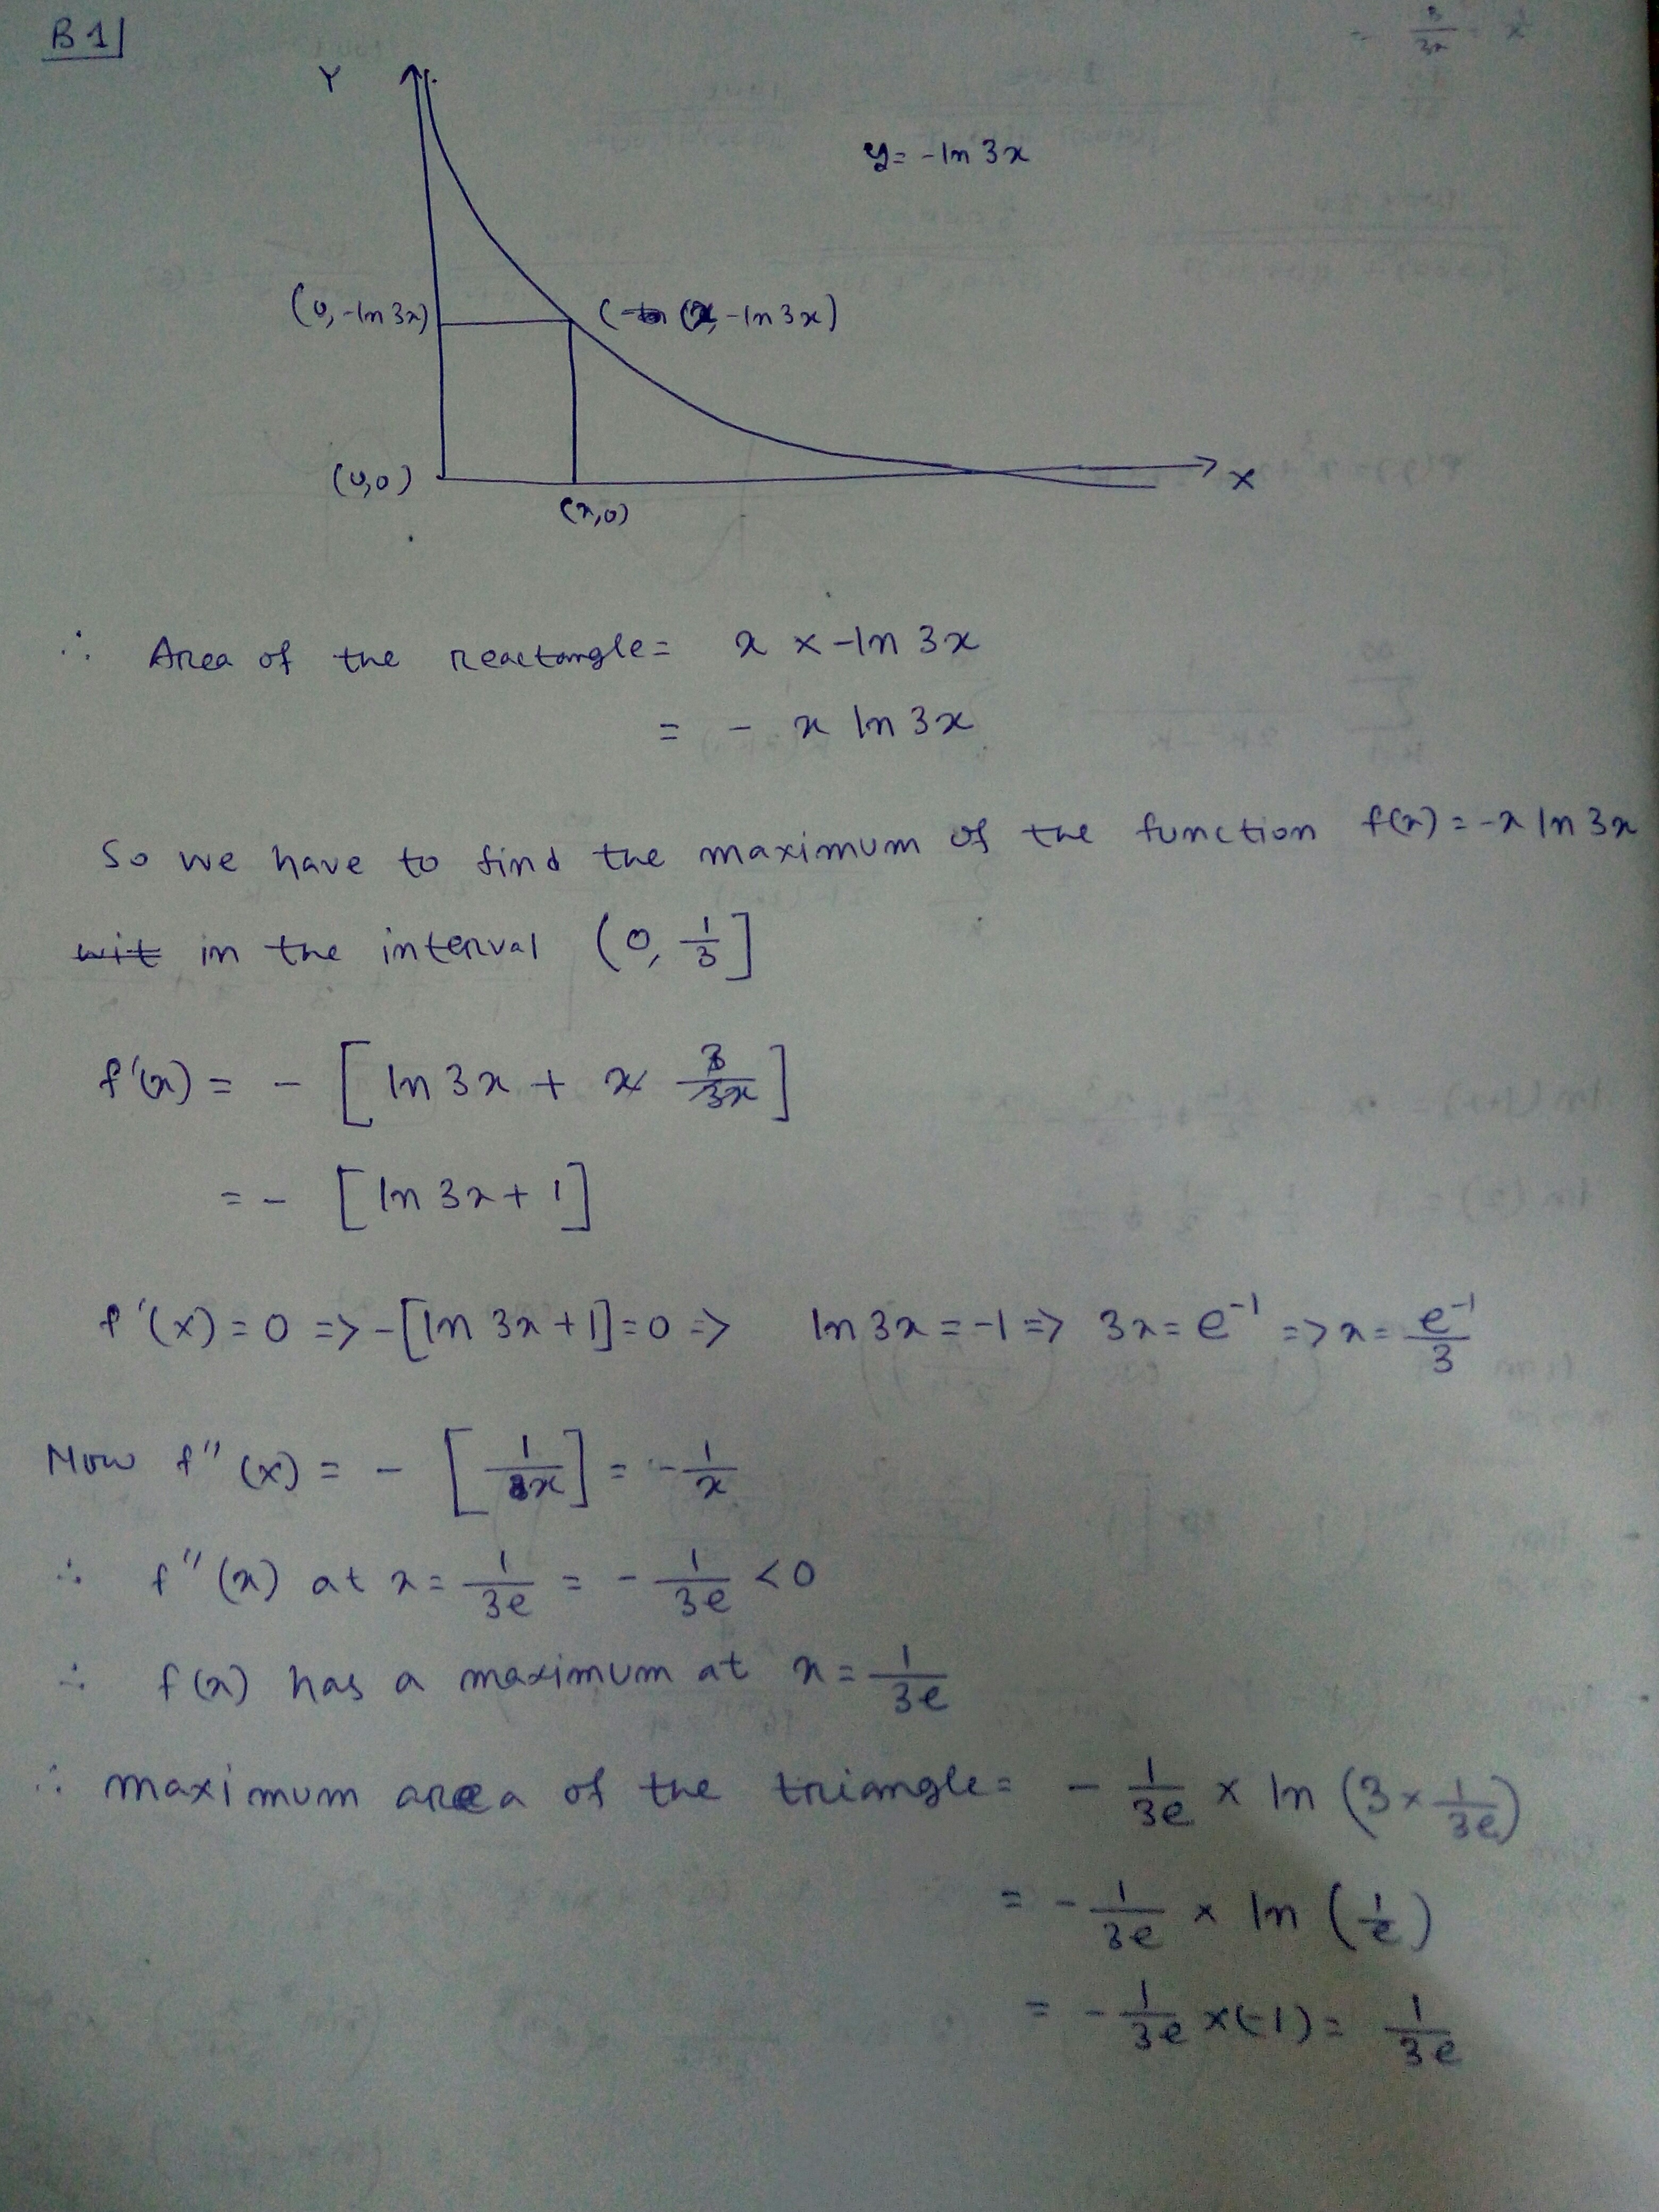 B1
Y
y = -ln 3x
(0, -ln 3x)
(x, -ln 3x)
(0,0)
(x,0)
X
∴ Area of the reactangle = x × -ln 3x
= - x ln 3x
So we have to find the maximum of the function f(x) = -x ln 3x
wit in the interval (0, 1/3]
f'(x) = - [ln 3x + x 3/3x]
= - [ln 3x + 1]
f'(x) = 0 => -[ln 3x + 1] = 0 => ln 3x = -1 => 3x = e^-1 => x = e^-1/3
Now f''(x) = - [1/x] = - 1/x
∴ f''(x) at x = 1/3e = - 1/3e < 0
∴ f(x) has a maximum at x = 1/3e
∴ maximum area of the triangle = - 1/3e × ln (3 × 1/3e)
= - 1/3e × ln (1/e)
= - 1/3e × (-1) = 1/3e